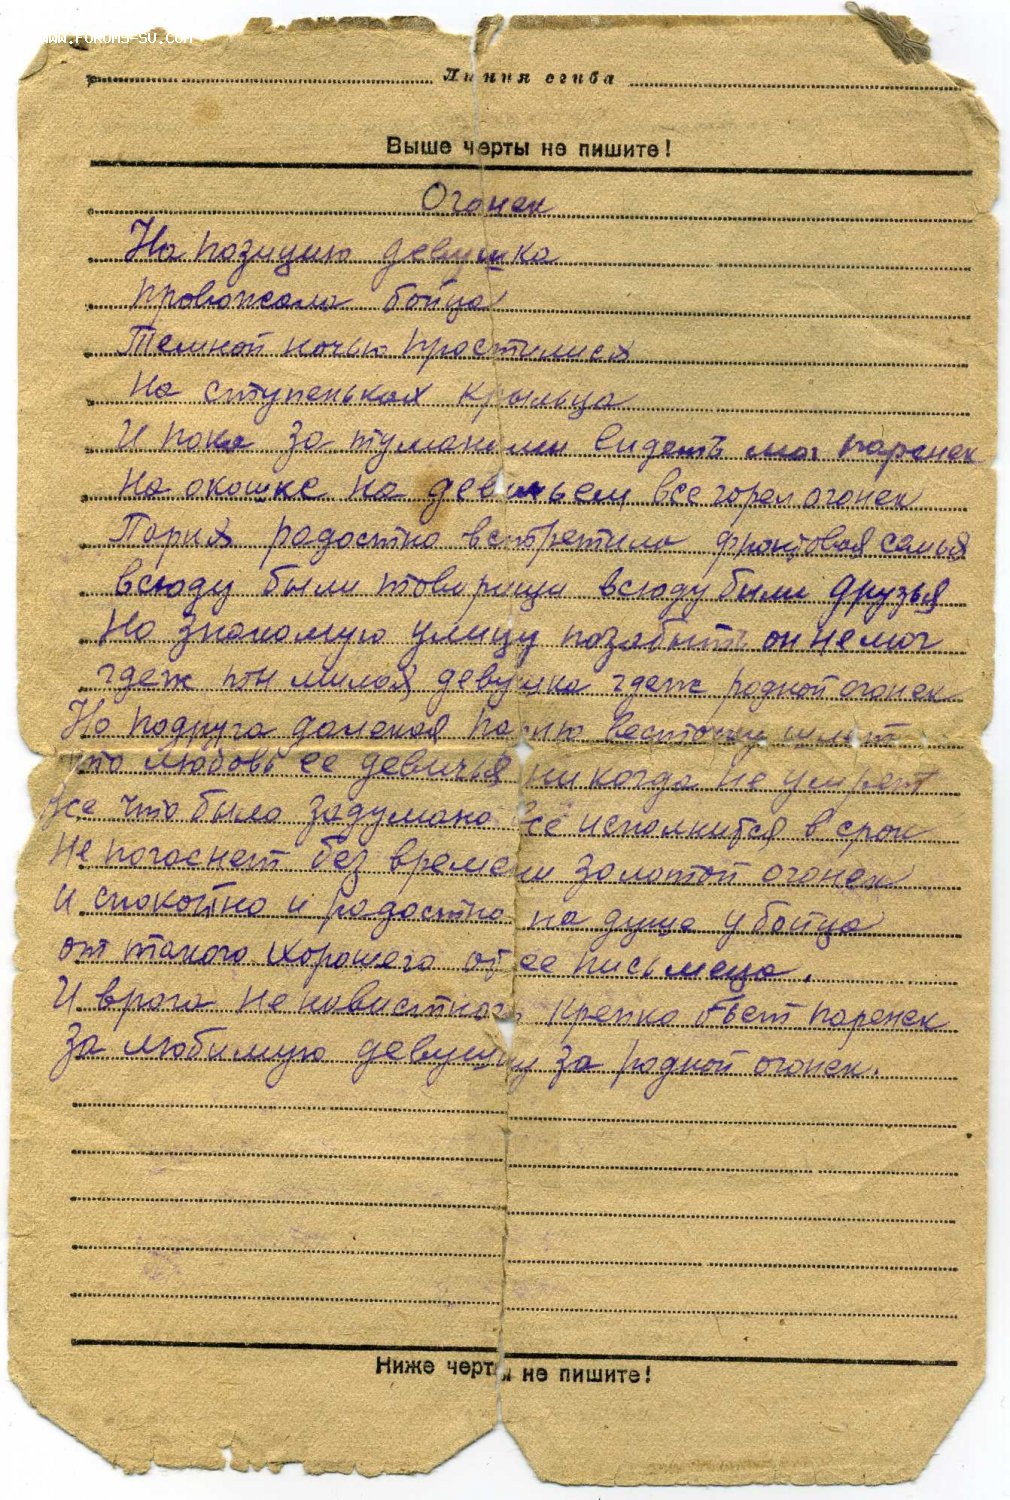 WWW.FORUMS-SU.COM
Линия сгиба
Выше черты не пишите!
Огонек
На позицию девушка
провожала бойца
Темной ночью простилися
на ступеньках крыльца
И пока за туманами видеть мог паренек
На окошке на девичьем все горел огонек
Парня радостно встретила фронтовая семья
всюду были товарищи всюду были друзья
Но знакомую улицу позабыть он не мог
где ж он милая девушка где ж родной огонек
Но подруга далекая парню весточку шлет
что любовь ее девичья никогда не умрет
все что было задумано всё исполнится в срок
Не погаснет без времени золотой огонек
и спокойно и радостно на душе у бойца
от такого хорошего от ее письмеца.
И врага ненавистного крепко бьет паренек
За любимую девушку за родной огонек.
Ниже черты не пишите!